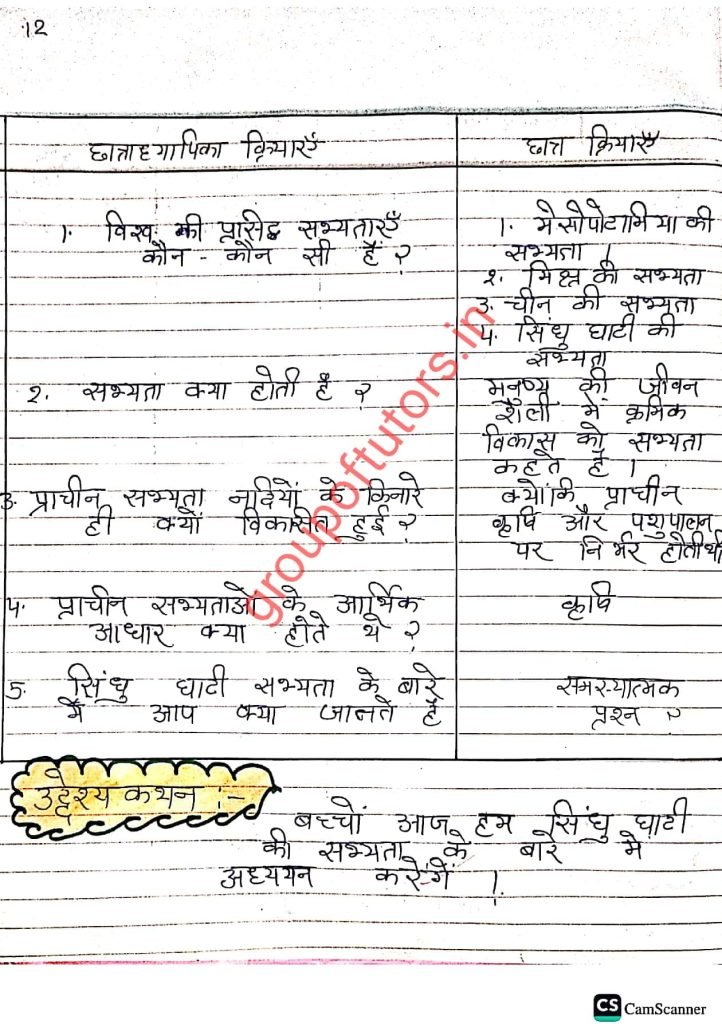 12
छात्राध्यापिका क्रियाएँ
छात्र क्रियाएँ
1. विश्व की प्रसिद्ध सभ्यताएँ
कौन - कौन सी हैं ?
1. मेसोपोटामिया की
सभ्यता ।
२. मिश्र की सभ्यता
३. चीन की सभ्यता
4. सिंधु घाटी की
सभ्यता
२. सभ्यता क्या होती है ?
मनुष्य की जीवन
शैली में क्रमिक
विकास को सभ्यता
कहते हैं ।
३. प्राचीन सभ्यता नदियों के किनारे
ही क्यों विकसित हुई ?
क्योंकि प्राचीन
कृषि और पशुपालन
पर निर्भर होती थी
4. प्राचीन सभ्यताओं के आर्थिक
आधार क्या होते थे ?
कृषि
5. सिंधु घाटी सभ्यता के बारे
में आप क्या जानते हैं
समस्यात्मक
प्रश्न ?
उद्देश्य कथन :-
बच्चों आज हम सिंधु घाटी
की सभ्यता के बारे में
अध्ययन करेंगें ।
groupoftutors.in
CS CamScanner